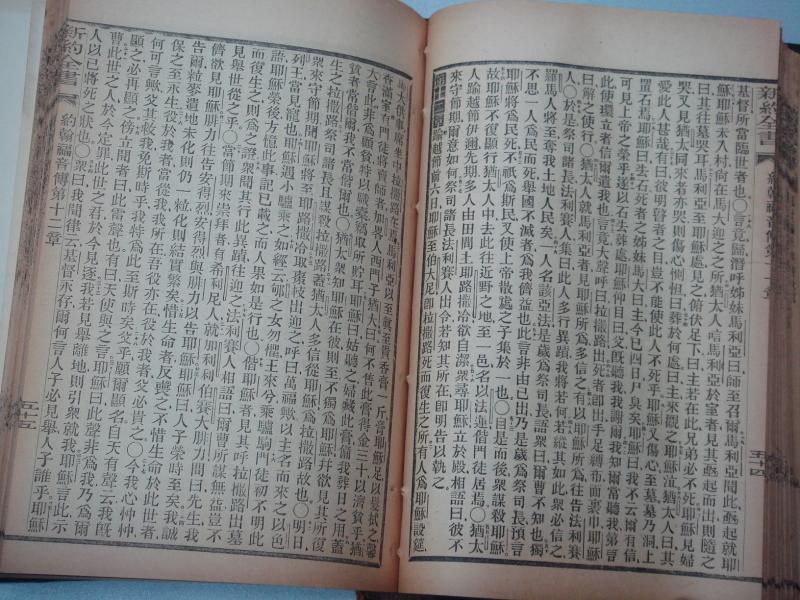 新約全書
五十四
基督所當臨世者也〇言竟歸潛呼姊妹馬利亞曰師至召爾馬利亞聞此亟起就耶
穌耶穌未入村尚在馬大迎之之所猶太人唁馬利亞於室者見其亟起而出則隨之
曰其往墓哭耳馬利亞至耶穌處見之俯伏足下曰主若在此兄弟必不死耶穌見婦
哭又見猶太同來者亦哭則傷心惻怛曰葬於何處曰主來觀之耶穌泣猶太人曰其
愛此人甚哉有曰彼明瞽者之目豈不能使此人不死乎耶穌又傷心至墓墓乃洞上
置石焉耶穌曰去石死者之姊妹馬大曰主今已四日尸臭矣耶穌曰我不
可見上帝之榮乎遂以石去葬處耶穌仰目曰父旣聽我我謝爾我知爾常聽我第言
此使環立者信爾遣我也言竟大聲呼曰拉撒路出死者卽出手足縛布面裹巾耶穌
曰解之使行〇猶太人就馬利亞者見耶穌所爲多信之有以耶穌所爲往告法利賽
人〇於是祭司諸長法利賽人集曰此人多行異蹟我將若何若縱其如此衆必信之
羅馬人將至奪我土地人民矣一人名該亞法是歲爲祭司長語衆曰爾曹不知也獨
不思一人爲民而死舉國不滅者爲我儕益也此言非由己出乃是歲爲祭司長預言
耶穌將爲民死不祇爲斯民又使上帝散處之子集於一也〇自是而後衆謀殺耶穌
故耶穌不復顯行猶太人中去此往近野之地至一邑名以法蓮偕門徒居焉〇猶太
人踰越節伊邇先期多人由田間上耶路撒冷欲自潔衆尋耶穌立於殿相語曰彼不
來守節期爾意如何祭司諸長法利賽人出令若知其所在卽明告以執之
踰越節前六日耶穌至伯大尼卽拉撒路死而復生之所有人爲耶穌設筵
馬大供事席坐中拉撒路在焉馬利亞以至眞至貴香膏一斤膏耶穌足以髮拭之馨
香滿室有門徒將賣師者加畧人西門子猶大曰何不售此膏得金三十以濟貧乎猶
大言此非爲顧貧特以職囊竊取所貯耳耶穌曰姑聽之婦藏此膏備我葬日之用蓋
貧者常偕爾我不常偕爾〇猶太衆知耶穌在彼則至不獨爲耶穌幷欲見其所復
生之拉撒路祭司諸長且謀殺拉撒路蓋猶太人多信從耶穌爲拉撒路故也〇明日
衆來守節期聞耶穌將至耶路撒冷取棗枝出迎之呼曰萬福歟以主名而來之以色
列王當見寵也耶穌遇小驢乘之如經云郇之女勿懼王來兮乘驢駒門徒初不明此
語耶穌榮後方憶此事記已載之而人果如是行也〇偕耶穌者見其呼拉撒路出墓
而復生之則爲之證衆聞其行此異蹟往迎之法利賽人相語曰爾曹所謀無益豈不
見舉世從之乎〇當節期來崇拜者有希利尼人就加利利伯賽大腓力問曰先生我
儕欲見耶穌腓力往告安得烈安得烈與腓力以告耶穌耶穌曰人子榮時至矣我誠
告爾粒麥遺地未化則仍一粒化則結實繁矣惜生命者反喪之不惜生命於此世者
保之至永生役於我者當從我我所在吾役亦在役於我者父必貴之〇今我心忡忡
何可言歟父其救我免斯時乎我特爲此至斯時矣父乎願爾顯名自天有聲云我旣
顯之必再顯之傍立聞者曰此雷聲也有曰天使與之言耶穌曰此聲非爲我乃爲爾
曹此世之人於今定罪此世之君於今見逐我若見舉離地則引衆就我耶穌言此示
人以己將死之狀也〇衆曰我聞律云基督永存爾何言人子必見舉人子誰乎耶穌
新約全書
約翰福音傳第十二章
五十五